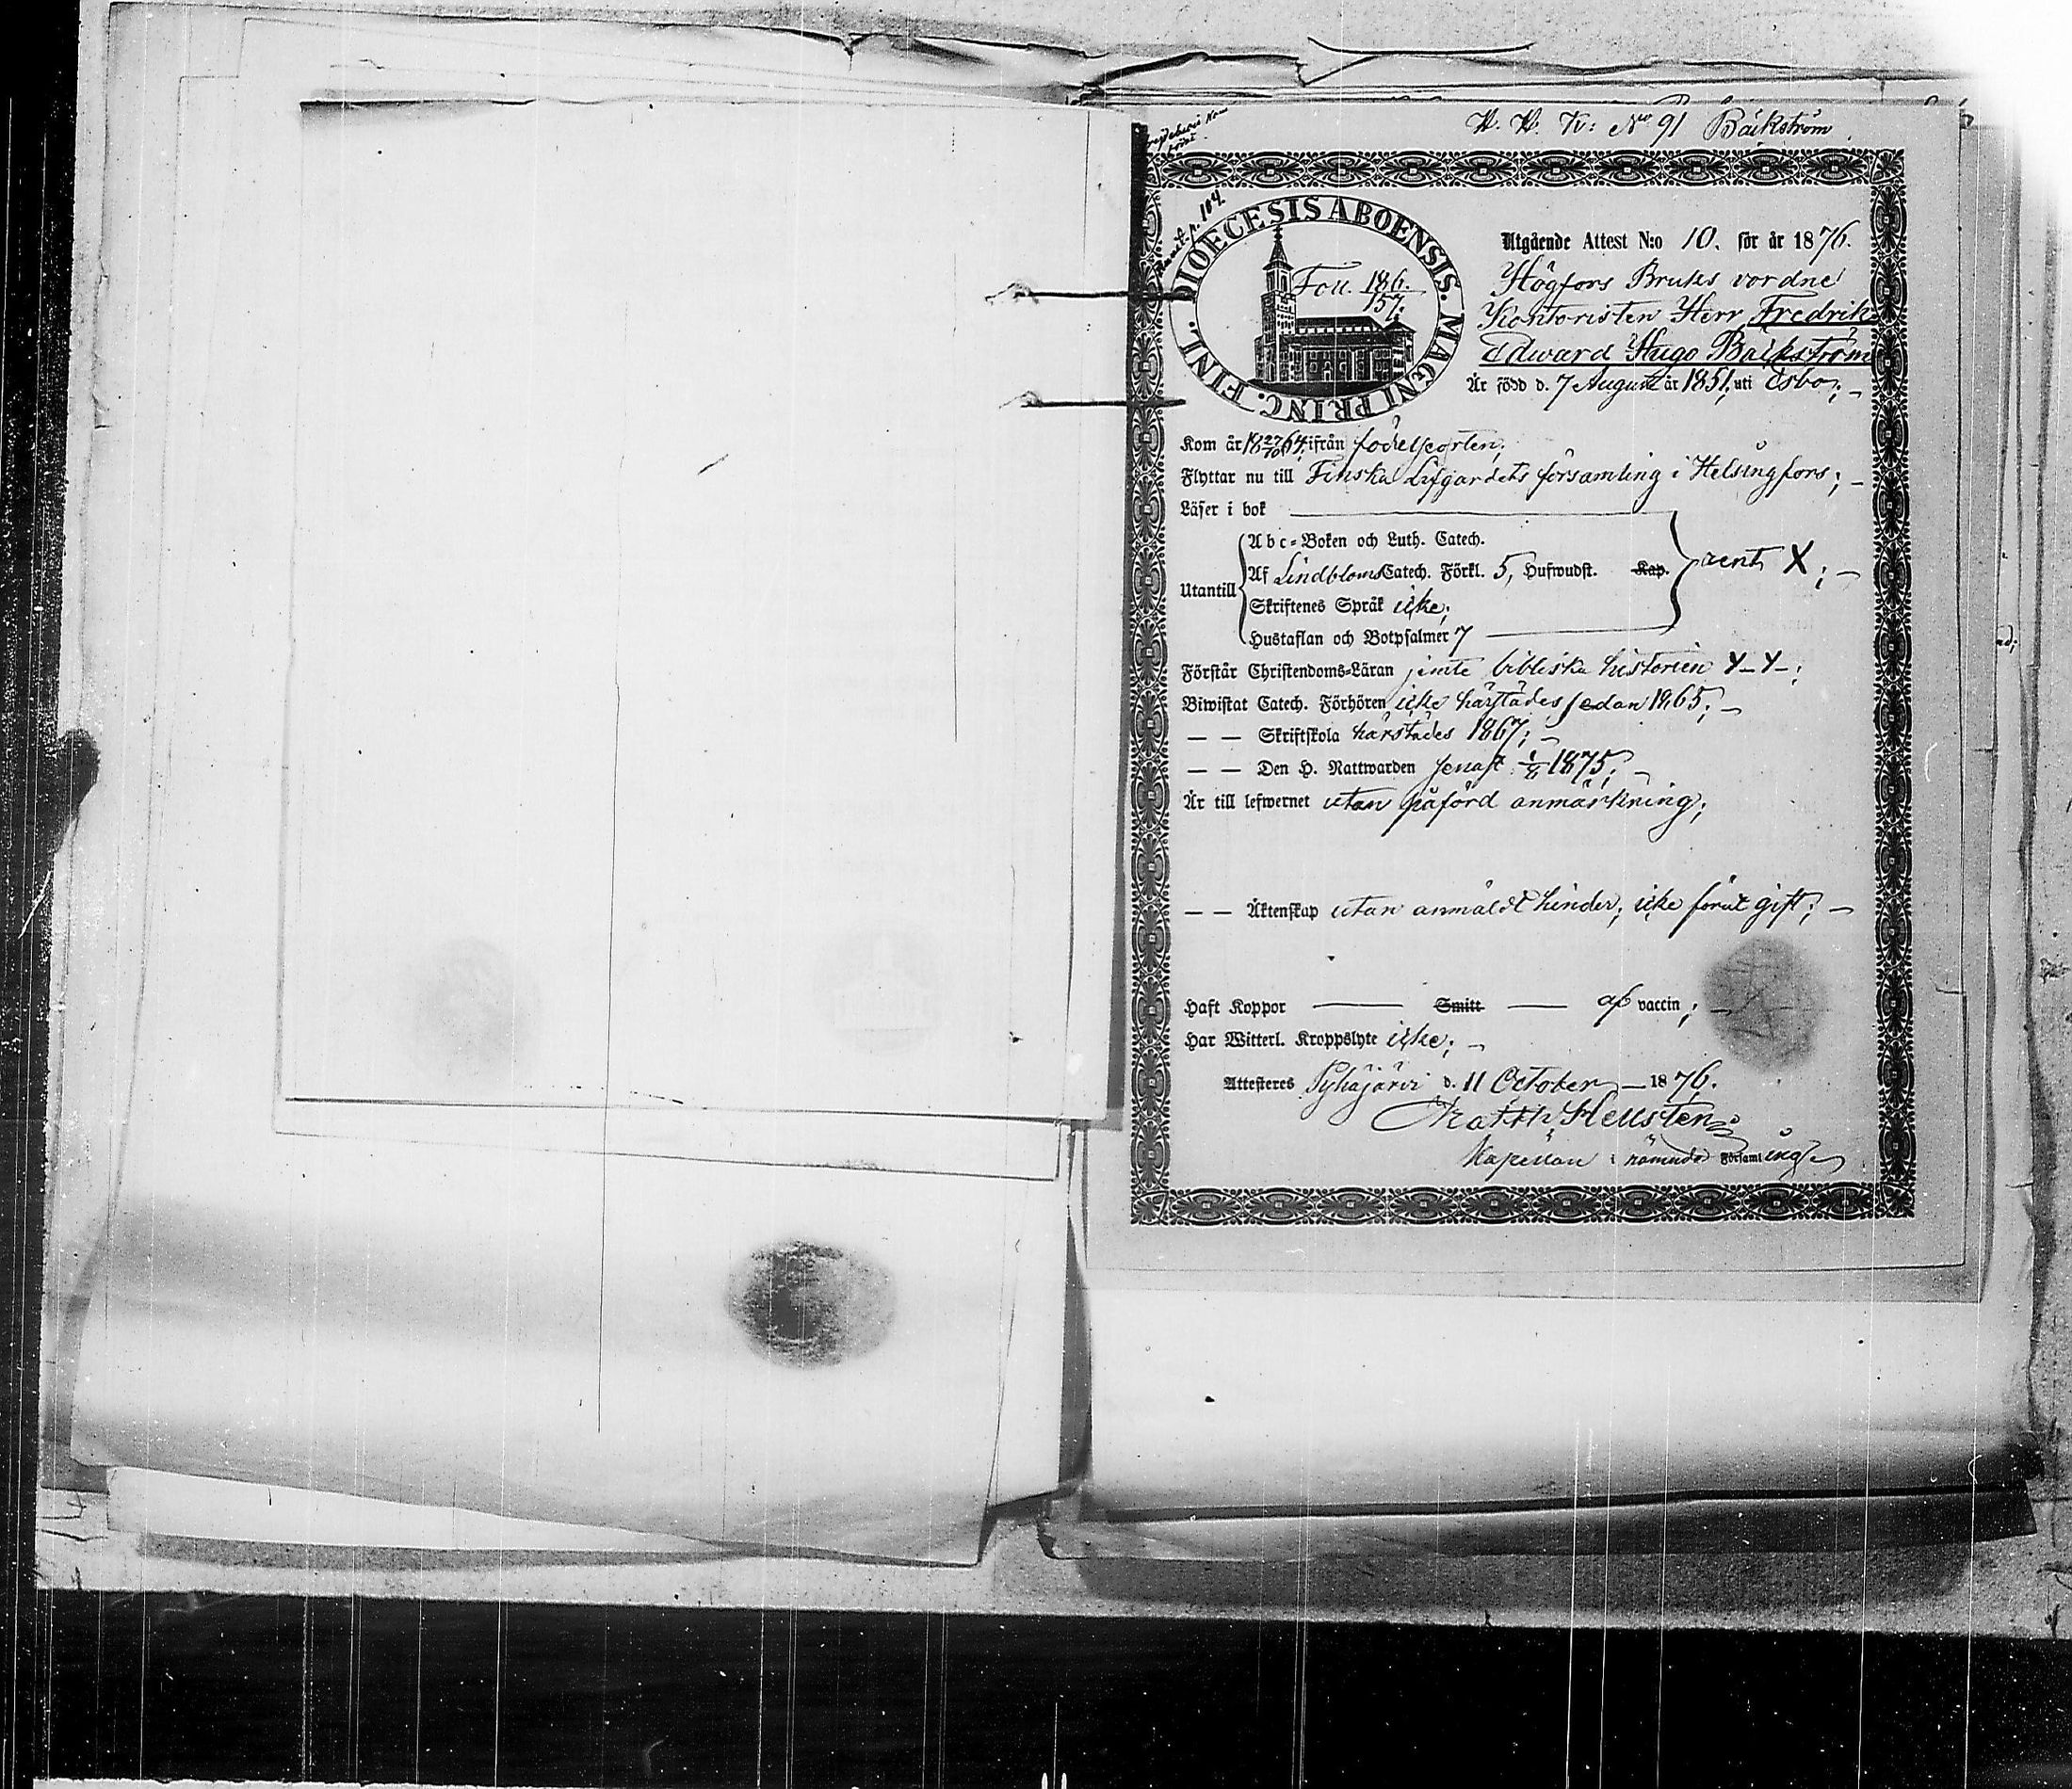 W. W. K: No 91 Bäckström
Annot. p. 104.
DIOECESIS ABOENSIS. MAGNI PRINC. FINL.
Foll. 186.
157.
Utgående Attest N:o 10. för år 1876.
Högfors Bruks vordne
Kontoristen Herr Fredrik
Edward Hugo Bäckström
Är född d. 7 August år 1851; uti Esbo; –
Kom år 18 27/10 64; ifrån födelseorten;
Flyttar nu till Finska Lifgardets församling i Helsingfors; –
Läser i bok
Abc-Boken och Luth. Catech.
Utantill Af Lindbloms Catech. Förkl. 5, Hufwudst. Kap. rent X; –
Skriftenes Språk icke;
Hustaflan och Botpsalmer 7
Förstår Christendoms-Läran jemte bibliska historien Y–Y–;
Biwistat Catech. Förhören icke härstädes sedan 1865; –
— — Skriftskola härstädes 1867; –
— — Den H. Nattwarden senast 1/8 1875; –
Är till lefwernet utan påförd anmärkning;
— — Äktenskap utan anmäldt hinder; icke förut gift; –
Haft Koppor — Smitt — af vaccin; –
Har Witterl. Kroppslyte icke; –
Attesteres Pyhäjärvi d. 11 October – 1876.
Matth. Hellsten
Kapellan i nämnde Församling